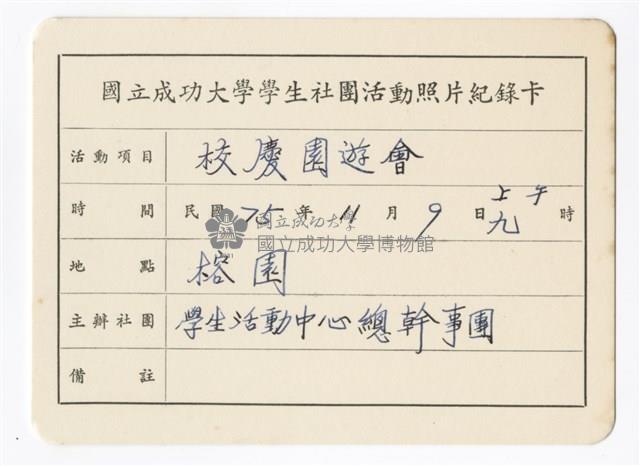 國立成功大學學生社團活動照片紀錄卡
活動項目 校慶園遊會
時間 民國 75 年 11 月 9 日 上午九 時
國立成功大學
國立成功大學博物館
地點 榕園
主辦社團 學生活動中心總幹事團
備註